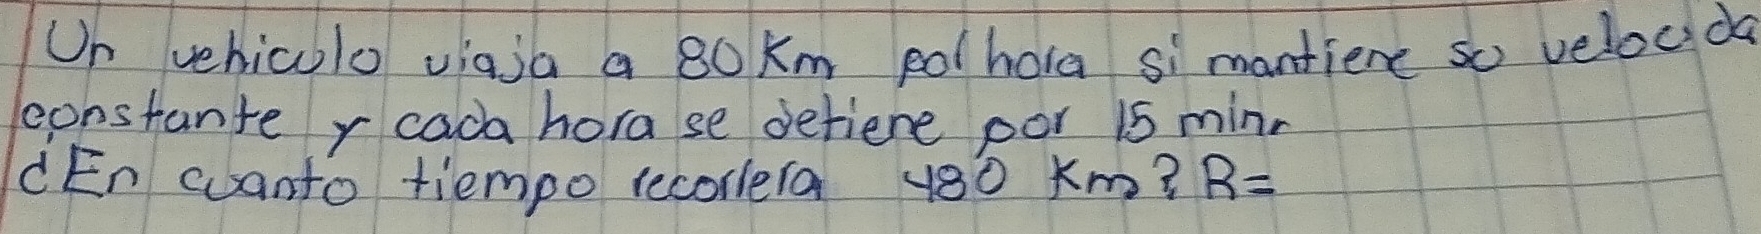 Un vehiculo viaja a 80 Km por hora si mantiene su velocida
constante y cada hora se detiene por 15 min.
¿En cuanto tiempo recorrera 480 Km? R=